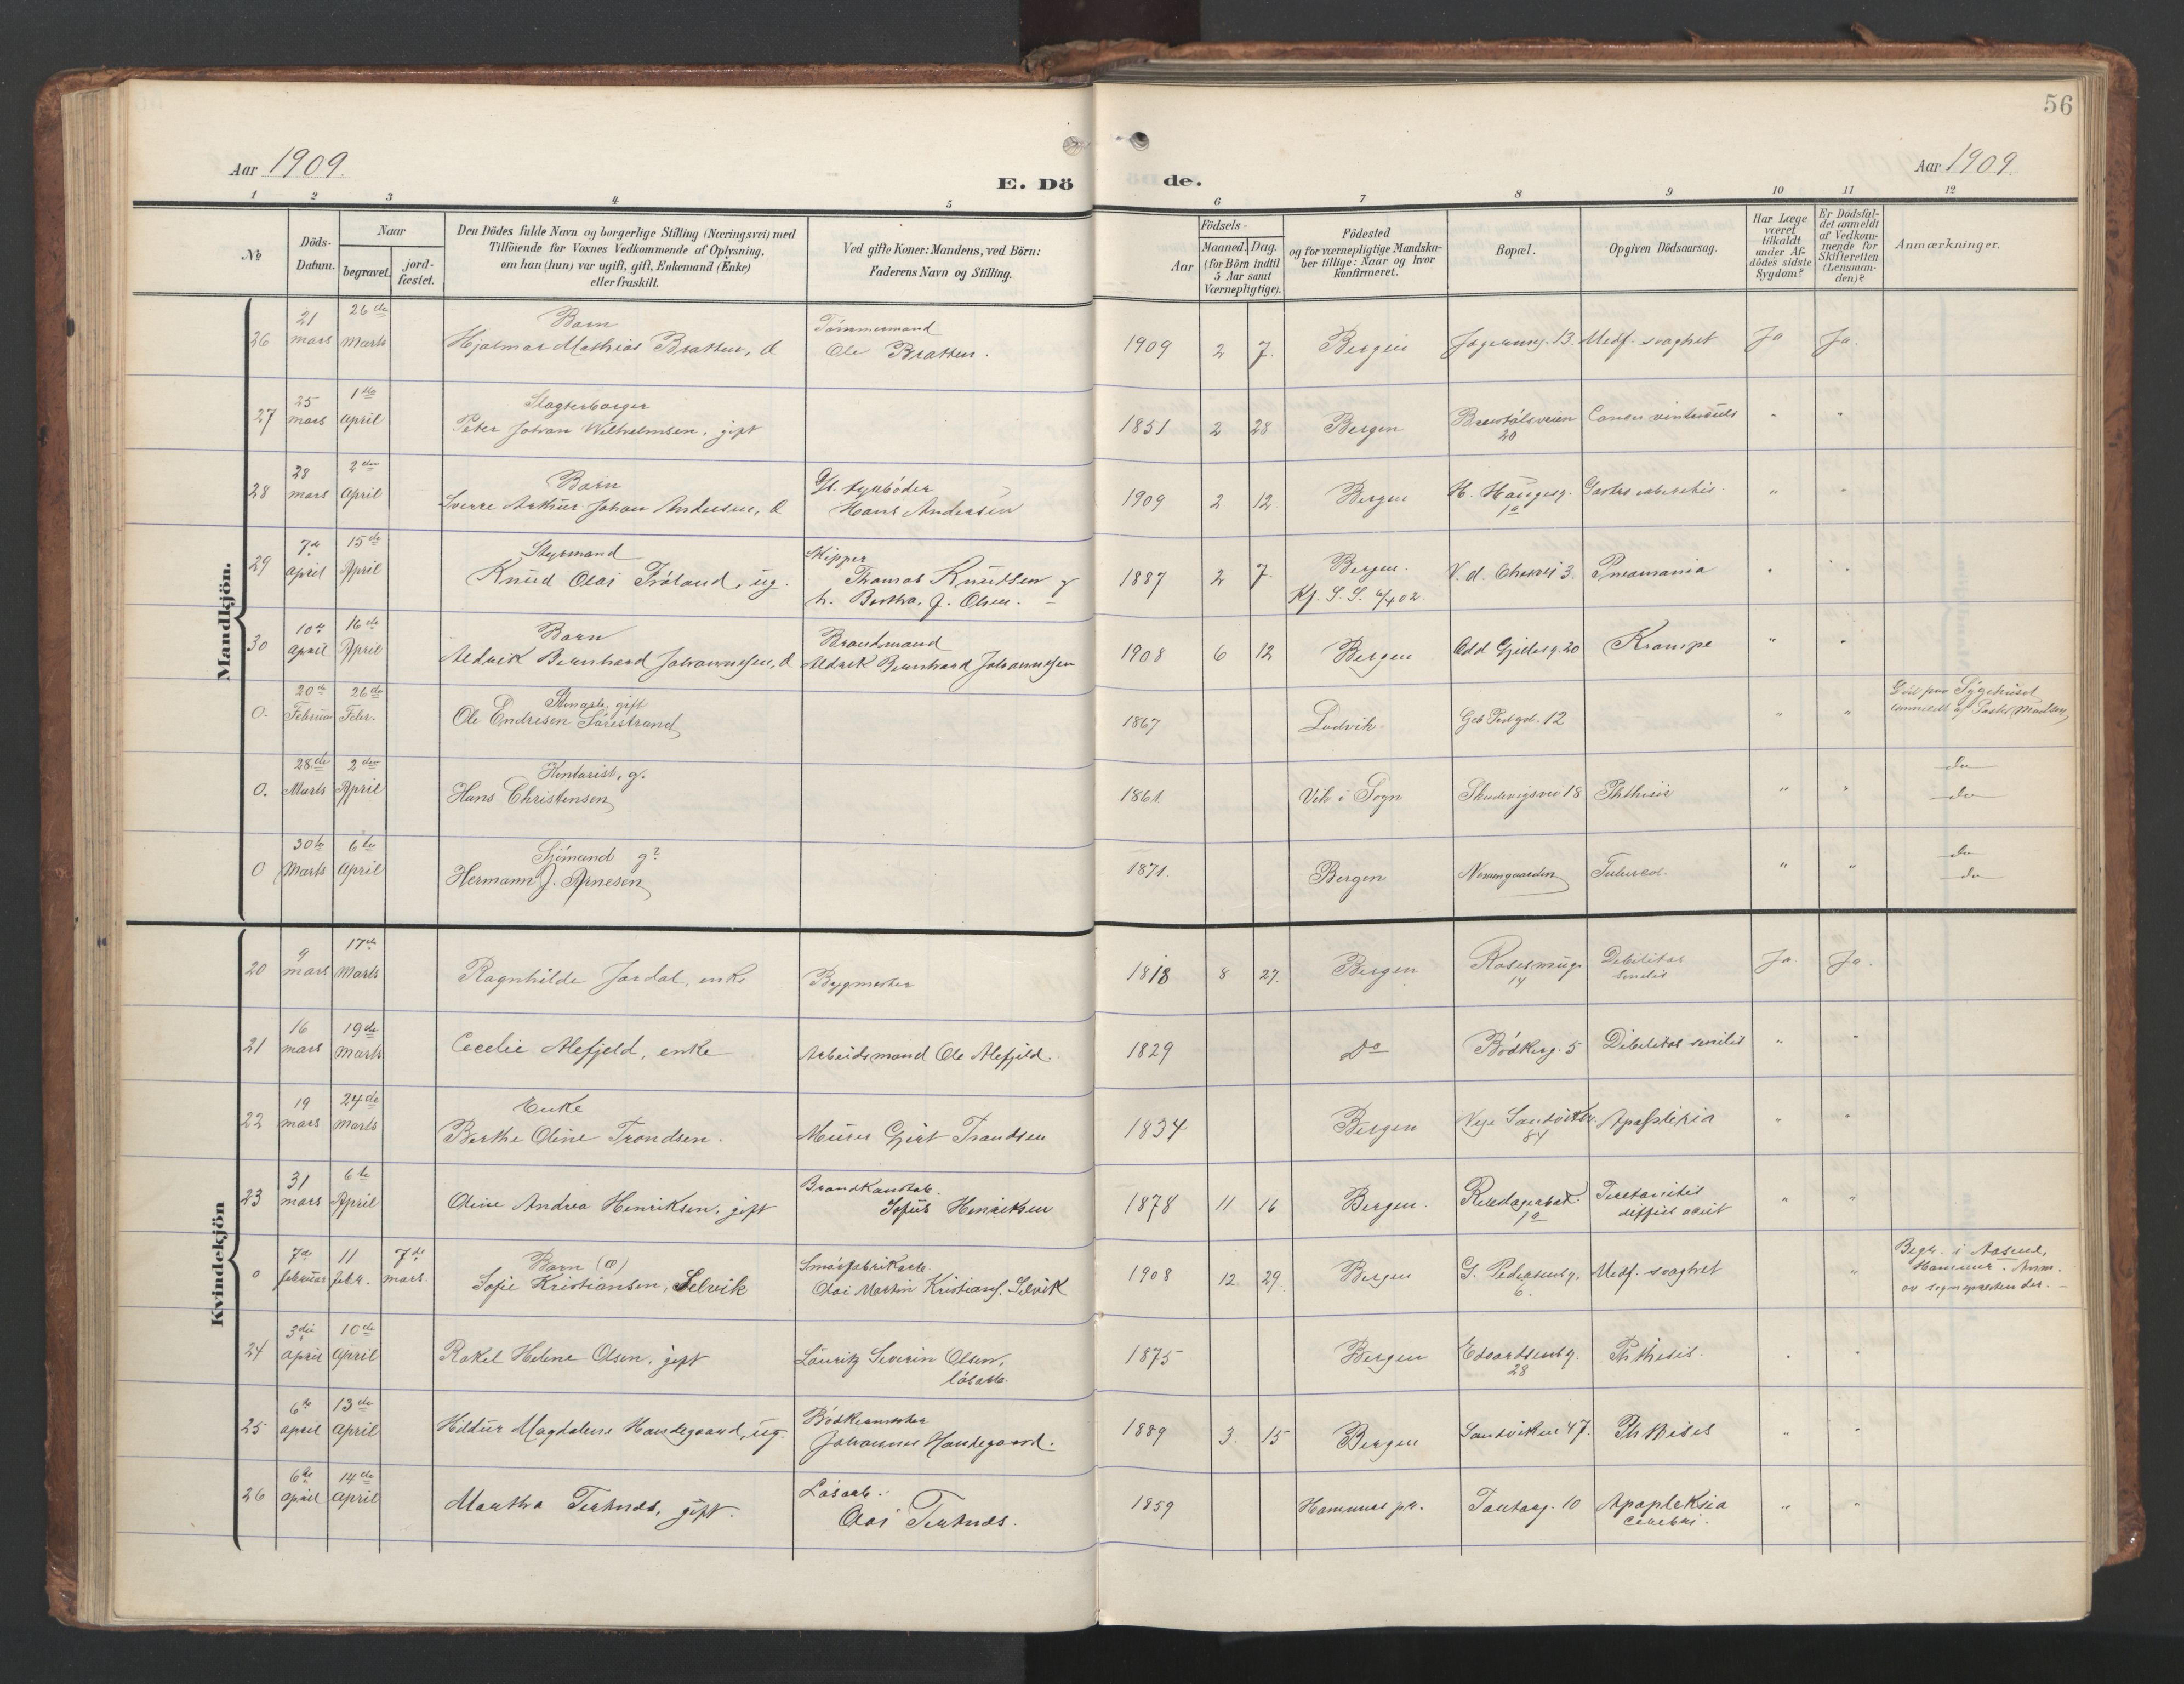 56
Aar 1909.
E. Dö de.
Aar 1909.
1 2 3 4 5 6 7 8 9 10 11 12
No
Döds-Datum.
Naar
begravet.
jord-fæstet.
Den Dödes fulde Navn og borgerlige Stilling (Næringsvei) med
Tilföiende for Voxnes Vedkommende af Oplysning,
om han (hun) var ugift, gift, Enkemand (Enke)
eller fraskilt.
Ved gifte Koner: Mandens, ved Börn:
Faderens Navn og Stilling.
Födsels-
Aar
Maaned. Dag.
(for Börn indtil
5 Aar samt
Værnepligtige).
Födested
og for værnepligtige Mandska-
ber tillige: Naar og hvor
konfirmeret.
Bopæl.
Opgiven Dödsaarsag.
Har Læge
været
tilkaldt
under Af-
dödes sidste
Sygdom?
Er Dödsfal-
det anmeldt
af Vedkom-
mende for
Skifteretten
(Lensman-
den)?
Anmærkninger.
Mandkjön.
26 21 mars 26de Marts Barn Hjalmar Mathias Bratten, d Tömmermand Ole Bratten. 1909 2 7. Bergen 13. Medf. svaghet Ja Ja.
27 25 mars 1ste April Slagterborger Peter Johan Wilhelmsen, gift 1851 2 28 Bergen 20 Cancer ventriculi " "
28 28 mars 2den April Barn Sverre Arthur Johan Andersen, d Hans Andersen 1909 2 12 Bergen H. Haugesg. 1a " "
29 7de april 15de April Styrmand Knud Olai Fröland, ug. Skipper Thomas Knudsen og h. Bertha J. Olsen. 1887 2 7. Bergen. Kf. S. S. 6/4 02. 3. Pneumonia " "
30 10de april 16de April Barn Aldrik Bernhard Johannesen, d Brandmand Aldrik Bernhard Johannesen 1908 6 12 Bergen Odd Gjelesg. 20 Krampe " "
0. 20de Februar 26de Febr. Stenarb. gift Ole Endresen Sörestrand 1867 Ladvik 12 " " Död paa Sygehuset anmeldt af Pastor Madsen
0. 28de Marts 2den April Kontorist, g. Hans Christensen 1861 Vik i Sogn Skudevigsvei 18 Phthisis " " do do
0 30te Marts 6te April Sjömand g? Hermann J. Arnesen 1871. Bergen Tubercol. " " do do
Kvindekjön
20 9 mars 17de Marts Ragnhilde Jordal, enke Bygmester 1818 8 27. Bergen 14 Debilitas senilis Ja. Ja.
21 16 mars 19de Marts Cecelie Alefjeld, enke Arbeidsmand Ole Alefjeld. 1829 Do Bödkerg. 5 Debilitas senilis " "
22 19 mars 24de Marts Enke Berthe Oline Trondsen. Murer Gjert Trondsen 1834 Bergen Nye Sandviksv. 84 Apoplexia " "
23 31 mars 6te April Oline Andrea Henriksen, gift Brandkonstab. Sofus Henriksen 1878 11 16 Bergen. 1a Peretonitis " "
0 7de februar 11 febr. 7de mars. Barn (æ) Sofie Kristiansen, Selvik Smörfabrikarb. Olai Martin Kristians. Selvik 1908 12. 29. Bergen G. Pedersensg. 6. Medf. svaghet " Begr. i Aasene, Hammer. Anm. av sogneprästen der.
24 3die april 10de April Rakel Helene Olsen, gift Lauritz Severin Olsen, lösarb. 1875 Bergen Edvardsensg. 28 Phthisis. " "
25 6te april 13de April Hildur Magdalene Handegaard, ug. Bödkermester Johannes Handegaard. 1889 3. 15 Bergen Sandviken 47. Phthisis " "
26 6te april 14de April Martha Terkneds, gift. Lösarb. Olai Terkneds. 1859 Hammer pr. 10 Apopleksia cerebri. " "